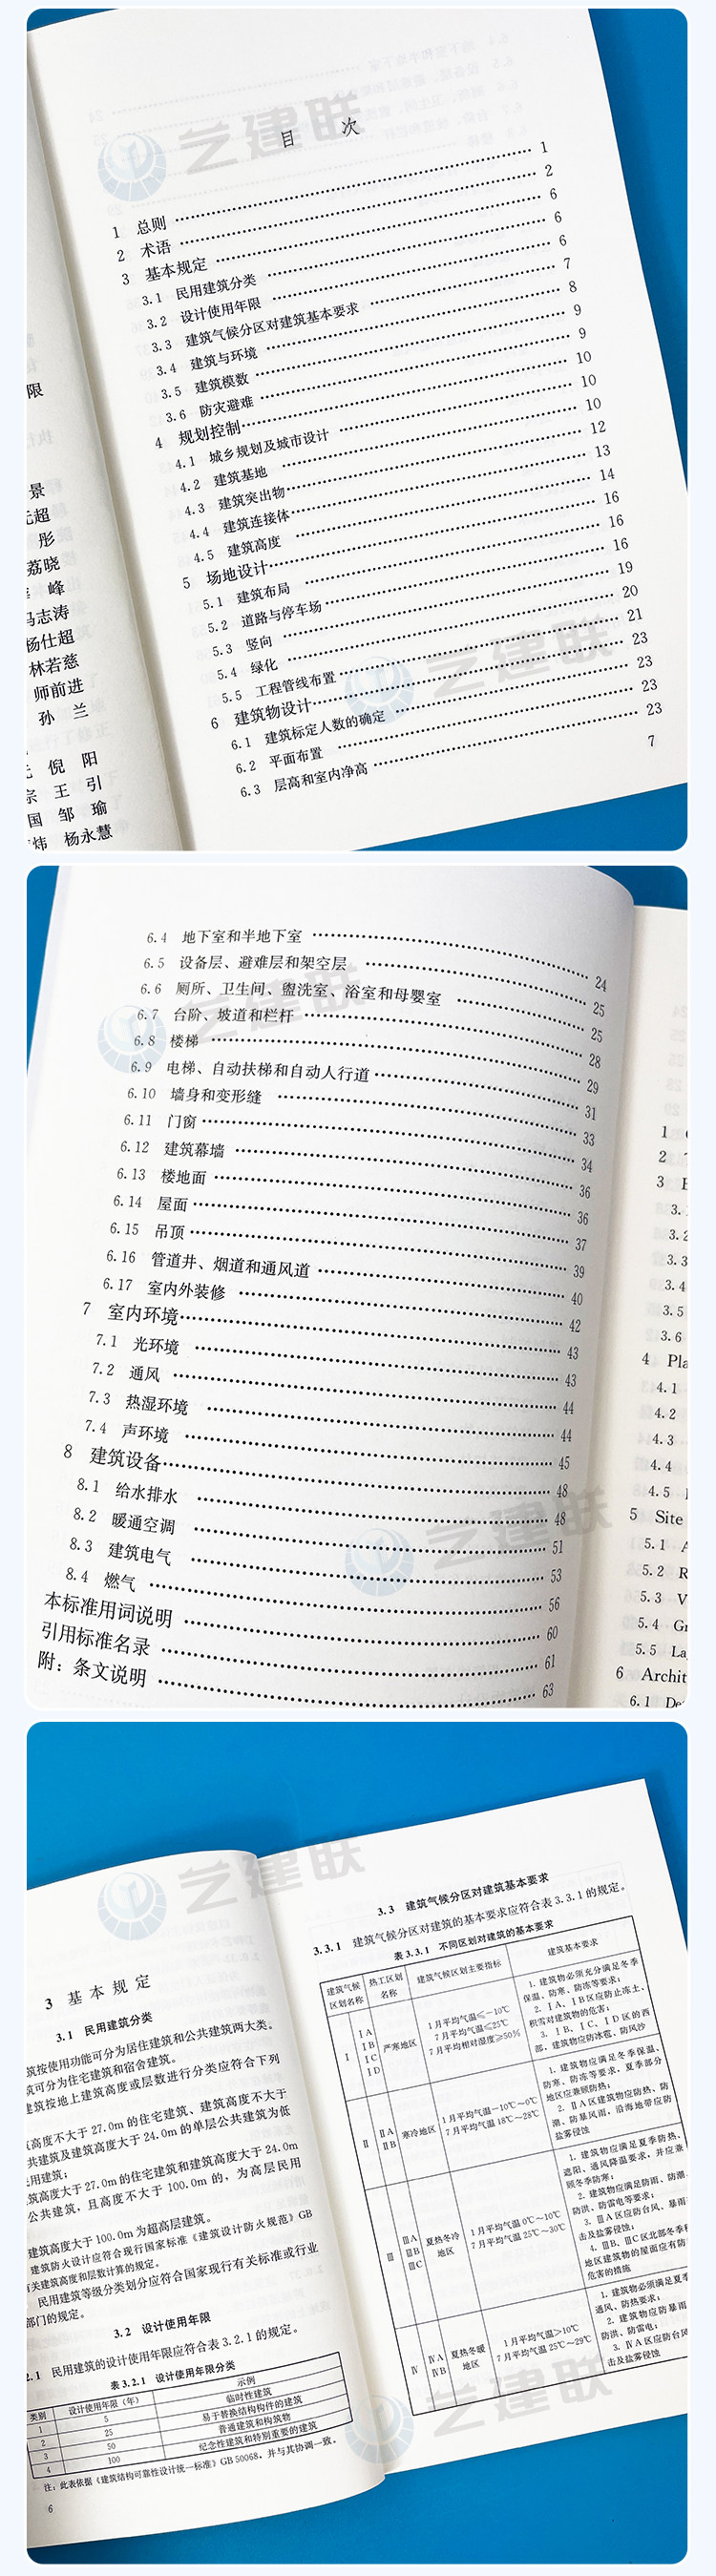 艺建联
目 次
1 总则 1
2 术语 2
3 基本规定 6
3.1 民用建筑分类 6
3.2 设计使用年限 6
3.3 建筑气候分区对建筑基本要求 7
3.4 建筑与环境 8
3.5 建筑模数 9
3.6 防灾避难 9
4 规划控制 10
4.1 城乡规划及城市设计 10
4.2 建筑基地 10
4.3 建筑突出物 12
4.4 建筑连接体 13
4.5 建筑高度 14
5 场地设计 16
5.1 建筑布局 16
5.2 道路与停车场 16
5.3 竖向 19
5.4 绿化 20
5.5 工程管线布置 21
6 建筑物设计 23
6.1 建筑标定人数的确定 23
6.2 平面布置 23
6.3 层高和室内净高 23
7
限
景
元超
彤
荔晓
峰
冯志涛
杨仕超
林若慈
师前进
孙 兰
倪 阳
宗 王 引
国 邹 瑜
炜 杨永慧
艺建联
艺建联
6.4 地下室和半地下室 24
6.5 设备层、避难层和架空层 25
6.6 厕所、卫生间、盥洗室、浴室和母婴室 25
6.7 台阶、坡道和栏杆 28
6.8 楼梯 29
6.9 电梯、自动扶梯和自动人行道 31
6.10 墙身和变形缝 33
6.11 门窗 34
6.12 建筑幕墙 36
6.13 楼地面 36
6.14 屋面 37
6.15 吊顶 39
6.16 管道井、烟道和通风道 40
6.17 室内外装修 42
7 室内环境 43
7.1 光环境 43
7.2 通风 44
7.3 热湿环境 44
7.4 声环境 45
8 建筑设备 48
8.1 给水排水 48
8.2 暖通空调 51
8.3 建筑电气 53
8.4 燃气 56
本标准用词说明 60
引用标准名录 61
附：条文说明 63
艺建联
1
2
3
3.
3.2
3.3
3.4
3.5
3.6
4 Pla
4.1
4.2
4.3
4.4
4.5
5 Site
5.1 A
5.2 R
5.3 V
5.4 Gr
5.5 La
6 Archit
6.1 De
艺建联
3 基本规定
3.1 民用建筑分类
筑按使用功能可分为居住建筑和公共建筑两大类。
筑可分为住宅建筑和宿舍建筑。
建筑按地上建筑高度或层数进行分类应符合下列
高度不大于27.0m的住宅建筑、建筑高度不大于
共建筑及建筑高度大于24.0m的单层公共建筑为低
民用建筑；
筑高度大于27.0m的住宅建筑和建筑高度大于24.0m
公共建筑，且高度不大于100.0m的，为高层民用
建筑高度大于100.0m为超高层建筑。
建筑防火设计应符合现行国家标准《建筑设计防火规范》GB
有关建筑高度和层数计算的规定。
民用建筑等级分类划分应符合国家现行有关标准或行业
部门的规定。
3.2 设计使用年限
2.1 民用建筑的设计使用年限应符合表3.2.1的规定。
表3.2.1 设计使用年限分类
类别 设计使用年限（年） 示例
1 5 临时性建筑
2 25 易于替换结构构件的建筑
3 50 普通建筑和构筑物
4 100 纪念性建筑和特别重要的建筑
注：此表依据《建筑结构可靠性设计统一标准》GB 50068，并与其协调一致。
6
3.3 建筑气候分区对建筑基本要求
3.3.1 建筑气候分区对建筑的基本要求应符合表3.3.1的规定。
表3.3.1 不同区划对建筑的基本要求
建筑气候区划名称 热工区划名称 建筑气候区划主要指标 建筑基本要求
Ⅰ ⅠA ⅠB ⅠC ⅠD 严寒地区
1月平均气温≤－10℃
7月平均气温≤25℃
7月平均相对湿度≥50%
1. 建筑物必须充分满足冬季
保温、防寒、防冻等要求；
2. ⅠA、ⅠB区应防止冻土、
积雪对建筑物的危害；
3. ⅠB、ⅠC、ⅠD区的西
部，建筑物应防冰雹、防风沙
Ⅱ ⅡA ⅡB 寒冷地区
1月平均气温－10℃～0℃
7月平均气温18℃～28℃
1. 建筑物应满足冬季保温、
防寒、防冻等要求，夏季部分
地区应兼顾防热；
2. ⅡA区建筑物应防热、防
潮、防暴风雨，沿海地带应防
盐雾侵蚀
Ⅲ ⅢA ⅢB ⅢC 夏热冬冷地区
1月平均气温0℃～10℃
7月平均气温25℃～30℃
1. 建筑物应满足夏季防热、
遮阳、通风降温要求，并应兼
顾冬季防寒；
2. 建筑物应满足防雨、防潮、
防洪、防雷电等要求；
3. ⅢA区应防台风、暴雨
击及盐雾侵蚀；
4. ⅢB、ⅢC区北部冬季积
地区建筑物的屋面应有防
危害的措施
Ⅳ ⅣA ⅣB 夏热冬暖地区
1月平均气温＞10℃
7月平均气温25℃～29℃
1. 建筑物必须满足夏季
通风、防热要求；
2. 建筑物应防暴雨、
防洪、防雷电；
3. ⅣA区应防台风
击及盐雾侵蚀
艺建联